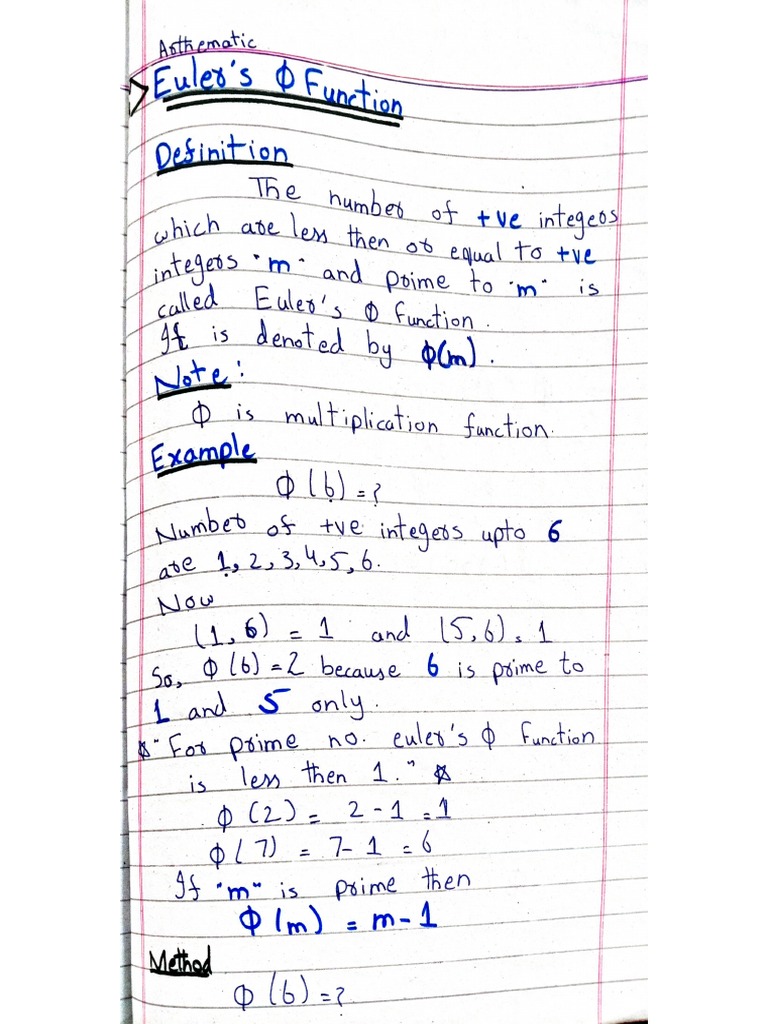 Arthematic
Euler's φ Function
Definition
The number of +ve integers
which are less then or equal to +ve
integers "m" and prime to "m" is
called Euler's φ function.
It is denoted by φ(m).
Note:
φ is multiplication function.
Example
φ(6)=?
Number of +ve integers upto 6
are 1, 2, 3, 4, 5, 6.
Now
(1, 6) = 1 and (5, 6) = 1
So, φ(6) = 2 because 6 is prime to
1 and 5 only.
☆ "For prime no. euler's φ function
is less then 1." ☆
φ(2) = 2-1 = 1
φ(7) = 7-1 = 6
If "m" is prime then
φ(m) = m-1
Method
φ(6)=?